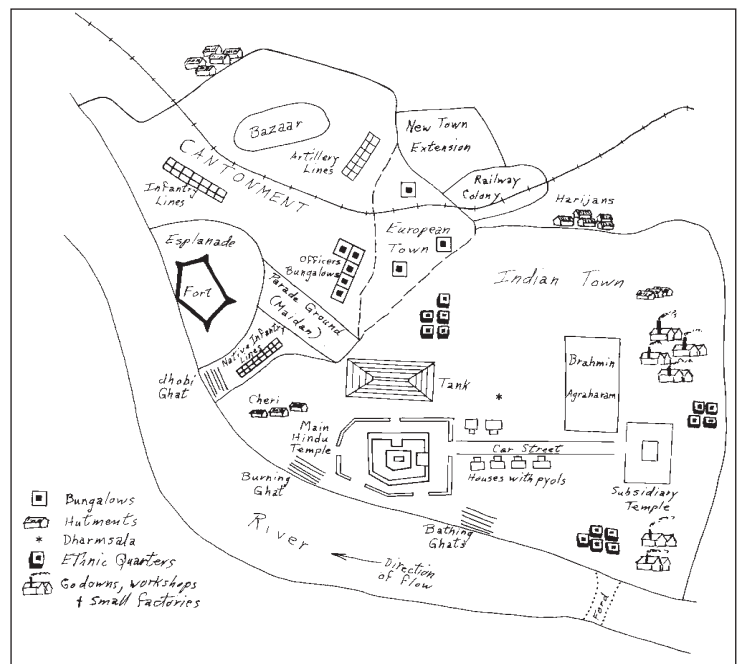 Bazaar
CANTONMENT
Artillery
Lines
Infantry
Lines
New Town
Extension
Railway
Colony
Harijans
European
Town
Esplanade
Fort
Officers
Bungalows
Parade Ground
(Maidan)
Indian Town
Native Infantry
Lines
dhobi
Ghat
Cheri
Tank
*
Brahmin
Agraharam
Main
Hindu
Temple
Car Street
Houses with pyols
Burning
Ghat
Subsidiary
Temple
Bathing
Ghats
River
Direction
of flow
Ford
Bungalows
Hutments
* Dharmsala
Ethnic Quarters
Godowns, workshops
+ small factories